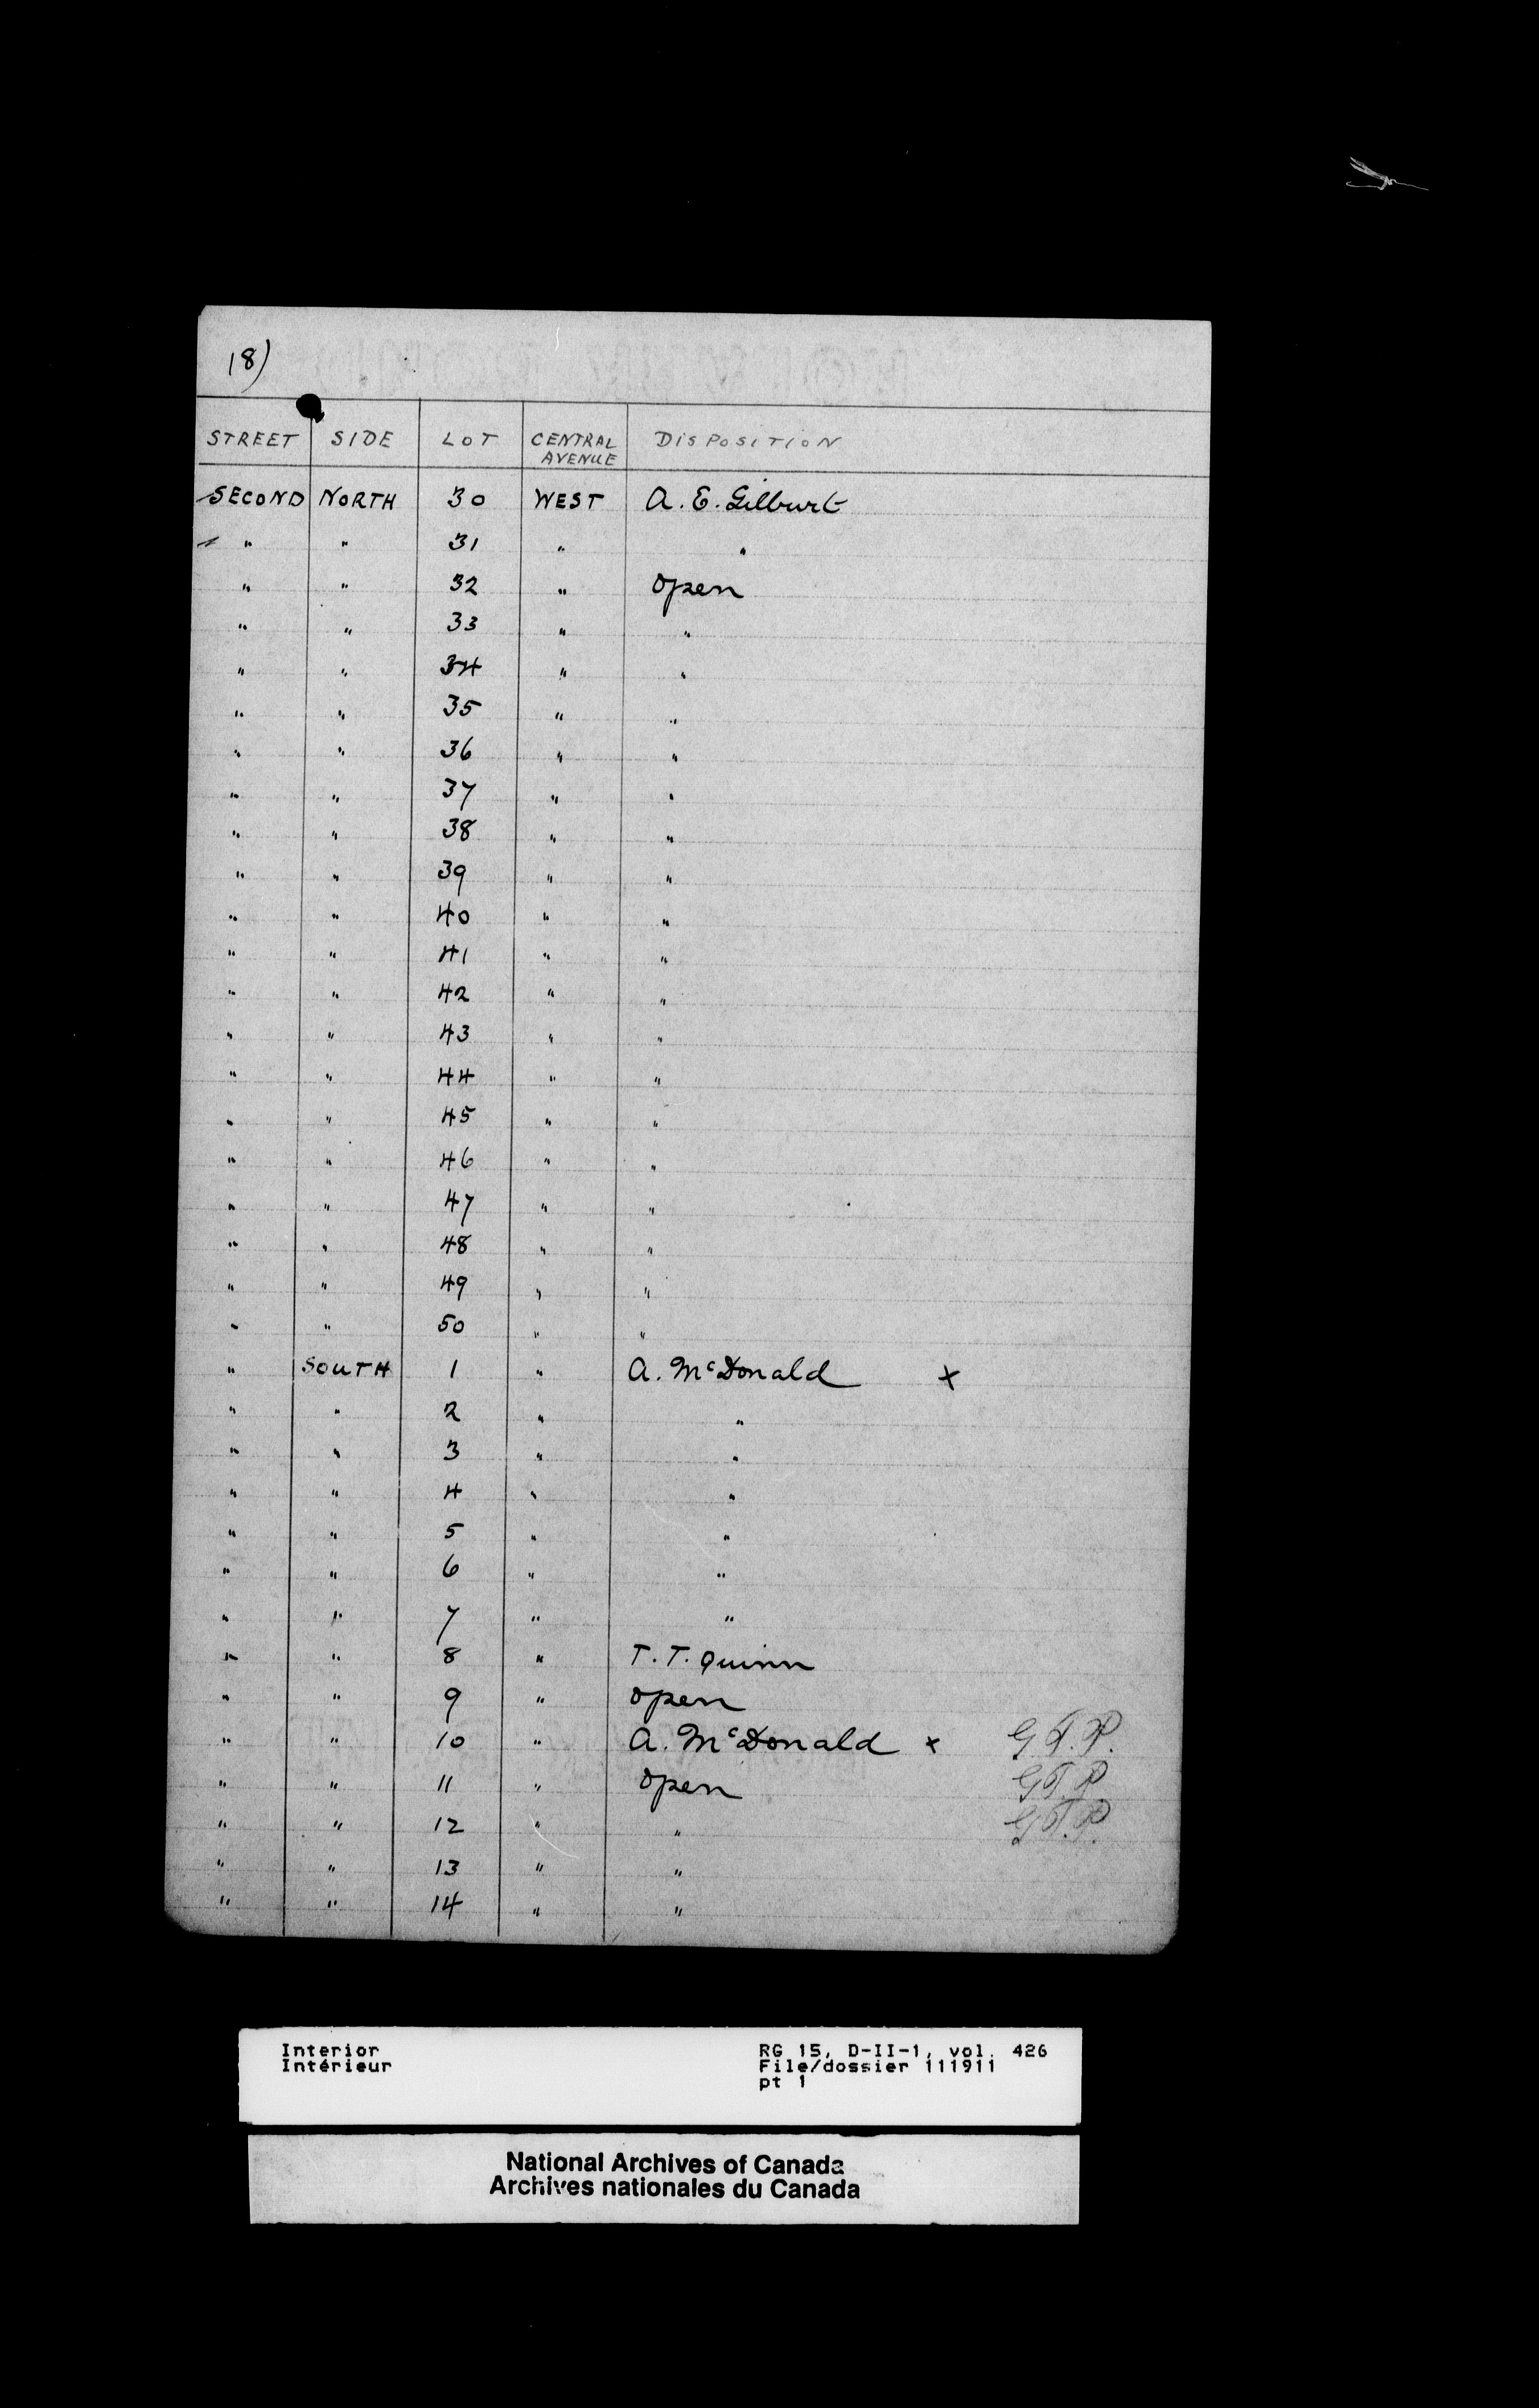 18)
STREET SIDE LOT CENTRAL AVENUE DISPOSITION
SECOND NORTH 30 WEST A. E. Gilburt
" " 31 " "
" " 32 " open
" " 33 " "
" " 34 " "
" " 35 " "
" " 36 " "
" " 37 " "
" " 38 " "
" " 39 " "
" " 40 " "
" " 41 " "
" " 42 " "
" " 43 " "
" " 44 " "
" " 45 " "
" " 46 " "
" " 47 " "
" " 48 " "
" " 49 " "
" " 50 " "
" SOUTH 1 " A. McDonald x
" " 2 " "
" " 3 " "
" " 4 " "
" " 5 " "
" " 6 " "
" " 7 " "
" " 8 " T. T. Quinn
" " 9 " open
" " 10 " A. McDonald x G.T.P.
" " 11 " open G.T.P
" " 12 " " G.T.P.
" " 13 " "
" " 14 " "
Interior RG 15, D-II-1, vol. 426
Intérieur File/dossier 111911
pt 1
National Archives of Canada
Archives nationales du Canada